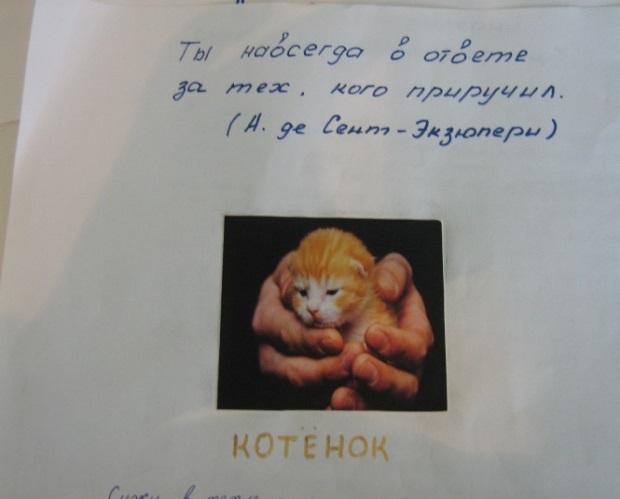 Ты навсегда в ответе
за тех, кого приручил.
(А. де Сент-Экзюпери)
КОТЁНОК